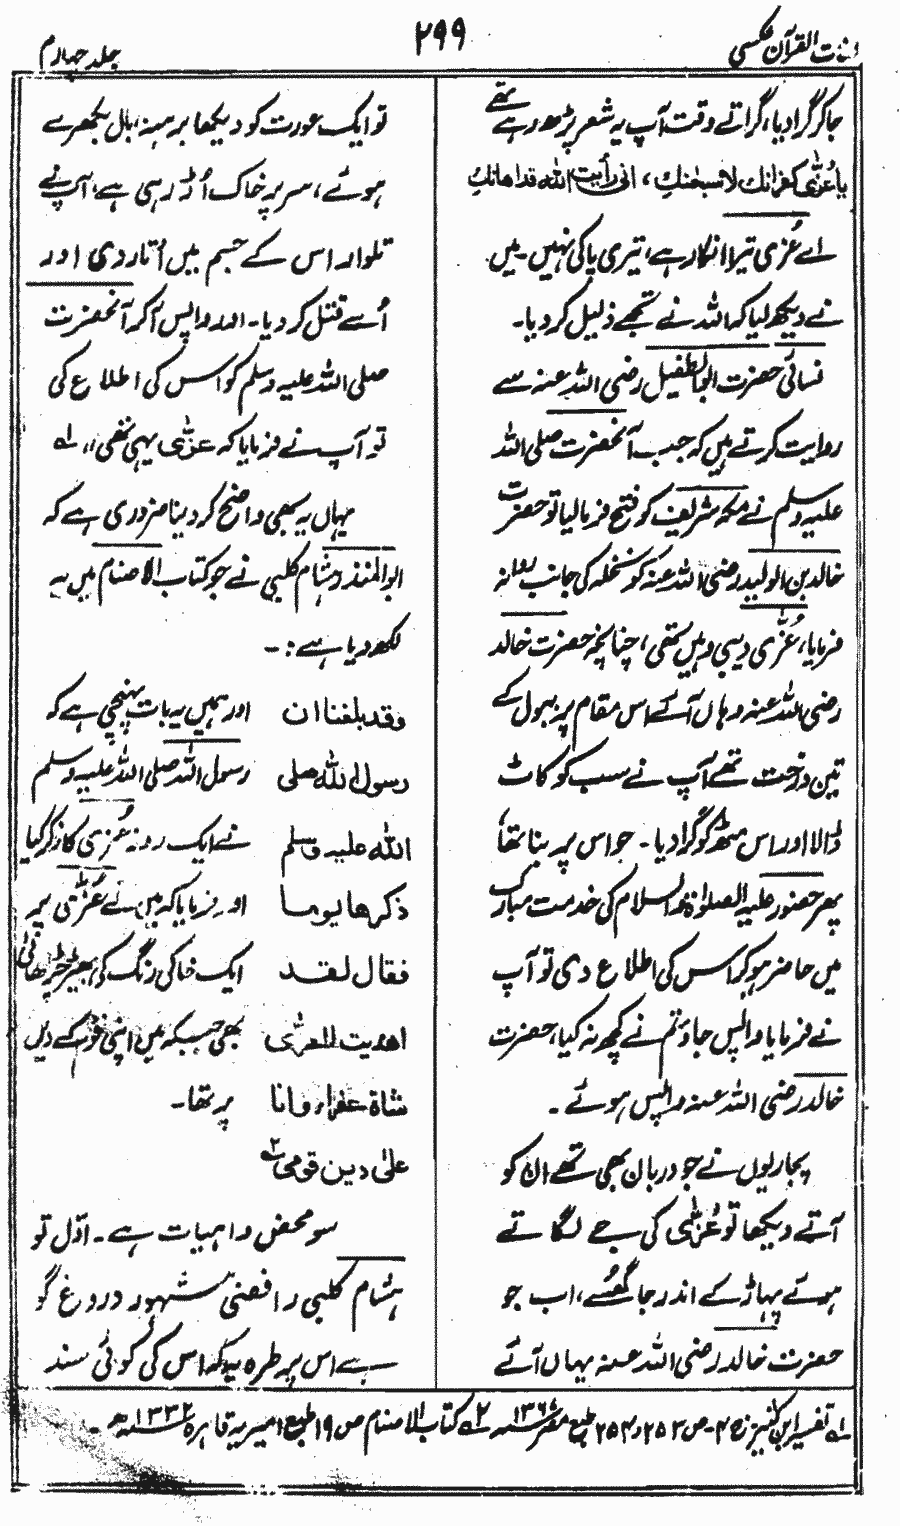 لغات القرآن عکسی
۲۹۹
جلد چہارم
جاکر گرا دیا، گراتے وقت آپ یہ شعر پڑھ رہے تھے
یا عُزّٰی کفرانك لا سبحٰنكِ ، انی رأیت الله قد اهانكِ
اے عُزی تیرا انکار ہے، تیری پاکی نہیں ۔ میں
نے دیکھ لیا کہ اللہ نے تجھے ذلیل کر دیا۔
نسائی حضرت ابوالطفیل رضی اللہ عنہ سے
روایت کرتے ہیں کہ جب آنحضرت صلی اللہ
علیہ وسلم نے مکہ شریف کو فتح فرمالیا تو حضرت
خالد بن الولید رضی اللہ عنہ کو نخلہ کی جانب روانہ
فرمایا، عُزّٰی دیبی وہیں تھی، چنانچہ حضرت خالد
رضی اللہ عنہ وہاں آئے اس مقام پر ببول کے
تین درخت تھے آپ نے سب کو کاٹ
ڈالا اور اس مٹھ کو گرا دیا ۔ جو اس پر بنا تھا
پھر حضور علیہ الصلوٰۃ والسلام کی خدمت مبارک
میں حاضر ہوکر اس کی اطلاع دی تو آپ
نے فرمایا واپس جاؤ تم نے کچھ نہ کیا، حضرت
خالد رضی اللہ عنہ واپس ہوئے ۔
پجاریوں نے جو دربان بھی تھے ان کو
آتے دیکھا تو عُزّٰی کی جے لگاتے
ہوئے پہاڑ کے اندر جا گھُسے، اب جو
حضرت خالد رضی اللہ عنہ یہاں آئے
تو ایک عورت کو دیکھا برہنہ، بال بکھرے
ہوئے، سر پر خاک اُڑ رہی ہے، آپ نے
تلوار اس کے جسم میں اُتار دی اور
اُسے قتل کر دیا ۔ اور واپس آکر آنحضرت
صلی اللہ علیہ وسلم کو اس کی اطلاع کی
تو آپ نے فرمایا کہ عزّٰی یہی تھی،، لہ
یہاں یہ بھی واضح کر دینا ضروری ہے کہ
ابوالمنذر ہشام کلبی نے جو کتاب الاصنام میں یہ
لکھ دیا ہے :۔
وقد بلغنا ان اور ہمیں یہ بات پہنچی ہے کہ
رسول الله صلی رسول اللہ صلی اللہ علیہ وسلم
الله علیہ وسلم نے ایک روز عُزی کا ذکر کیا
ذکرها یوما اور فرمایا کہ میں نے عُزّٰی پر
فقال لقد ایک خاکی رنگ کی بھیڑ چڑھائی
اهدیت للعزّٰی تھی جبکہ میں اپنی قوم کے دین
شاة عفراء وانا پر تھا۔
علٰی دین قومی ۲ہ
سو محض واہیات ہے ۔ اوّل تو
ہشام کلبی رافضی مشہور دروغ گو
ہے اس پر طرہ یہ کہ اس کی کوئی سند
لہ تفسیر ابن کثیر ج ۴ ۔ ص ۲۵۳ و ۲۵۴ طبع مصر سنہ ۱۳۶۵ھ ۲ہ کتاب الاصنام ص ۱۹ طبع امیریہ قاہرہ سنہ ۱۳۳۲ھ ۔